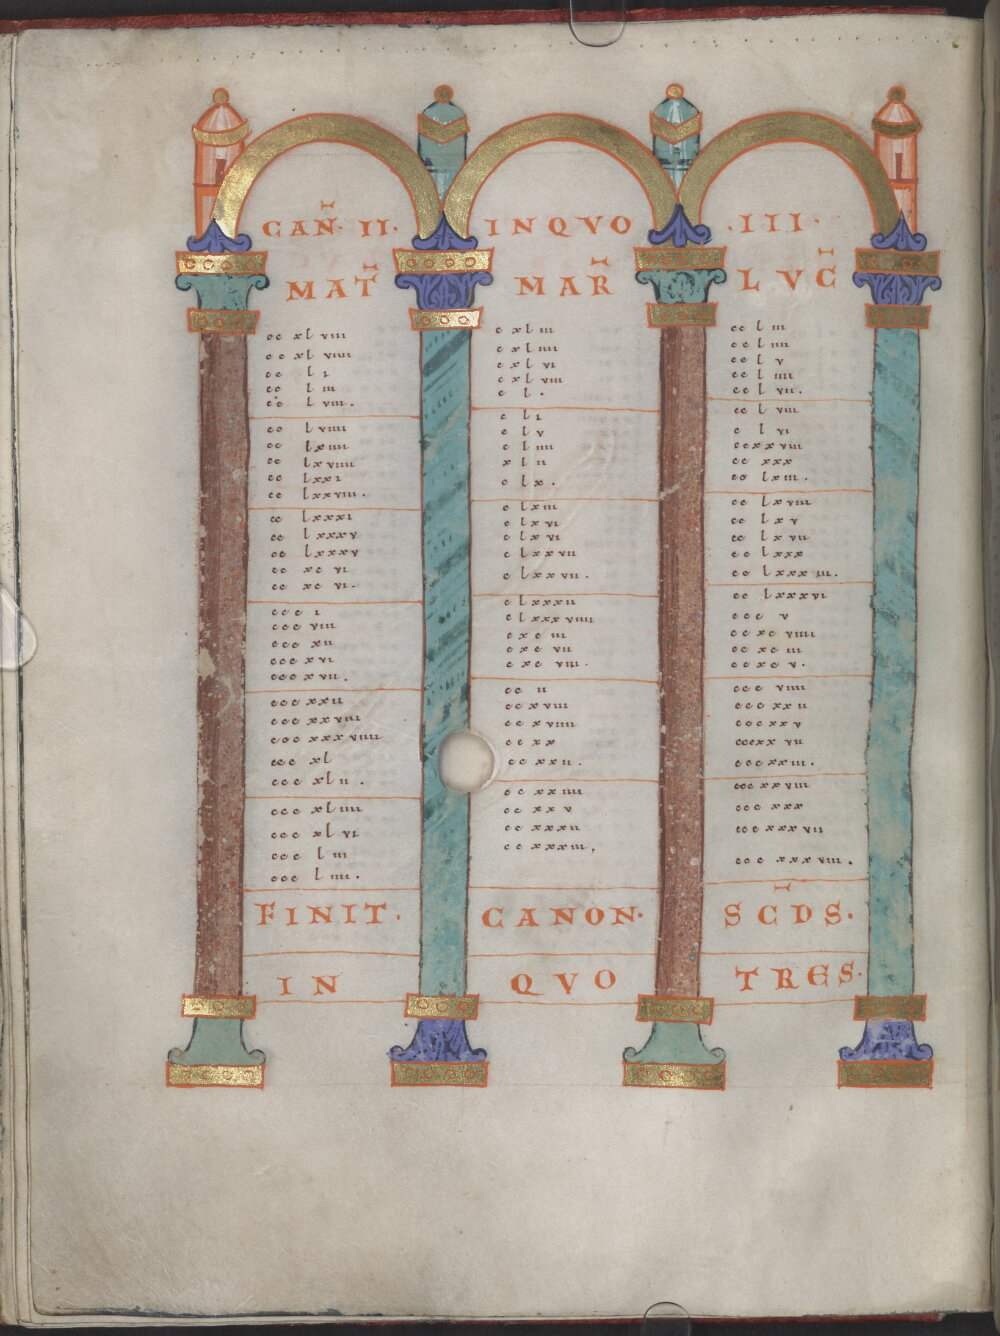 CAÑ· II· INQVO ·III·
MAT̄ MAR̄ LVC̄
cc xl viii c xl iii cc l iii
cc xl viiii c xl iiii cc l iiii
cc l i c xl vi cc l v
cc l iii c xl viii cc l iiii
cc l viii. c l . cc l vii.
cc l viiii c l i cc l viii
cc lxiiii c l v c l vi
cc lxviiii c l iiii ccxxviii
cc lxxi xl ii cc xxx
cc lxxviii. c lx. cc lxiii.
cc lxxxi c lxiii cc lxviii
cc lxxxv c lxvi cc lxv
cc lxxxv c lxvi cc lxvii
cc xc vi c lxxvii cc lxxx
cc xc vi. c lxxvii. cc lxxxiii.
ccc i c lxxxii cc lxxxvi
ccc viii c lxxxviiii ccc v
ccc xii c xc iii cc xc viiii
ccc xvi c xc vii cc xc iii
ccc xvii. c xc viii. cc xc v.
ccc xxii cc ii ccc viiii
ccc xxviii cc xviii ccc xxii
ccc xxxviiii cc xviiii ccc xxv
ccc xl cc xx cccxx vii
ccc xl ii. cc xxii. cccxxiii.
ccc xl iiii cc xxiiii ccc xxviii
ccc xl vi cc xxv ccc xxx
ccc l iii cc xxxii ccc xxxvii
ccc l iiii. cc xxxiii. ccc xxxviii.
FINIT· CANON· SC̄DS·
IN QVO TRES·